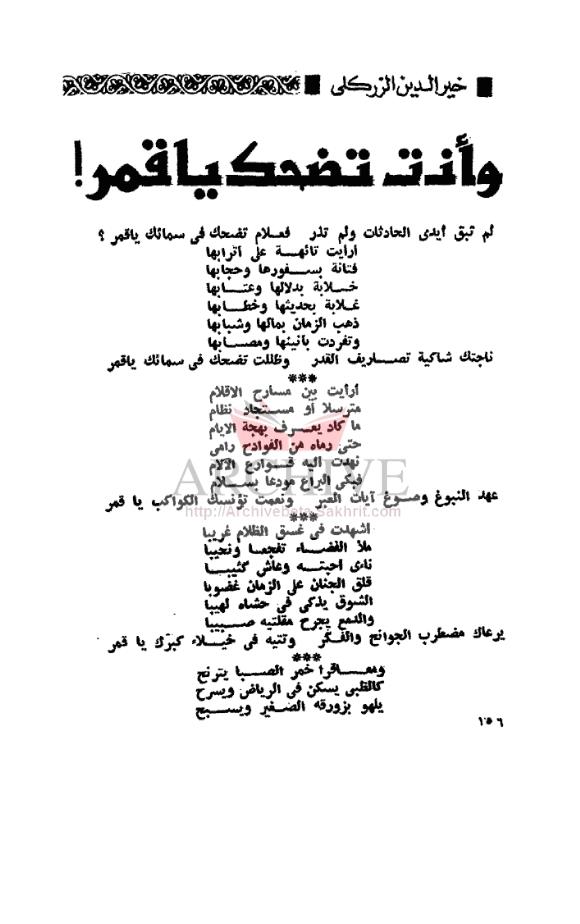 خير الدين الزركلى
وأنت تضحك يا قمر!
لم تبق أيدى الحادثات ولم تذر فعلام تضحك فى سمائك ياقمر ؟
أرأيت تائهة على أترابها
فتانة بسفورها وحجابها
خلابة بدلالها وعتابها
غلابة بحديثها وخطابها
ذهب الزمان بمالها وشبابها
وتفردت بأنينها ومصابها
ناجتك شاكية تصاريف القدر وظللت تضحك فى سمائك ياقمر
***
أرأيت بين مسارح الاقلام
مترسلا أو مستجاد نظام
ما كاد يعرف بهجة الايام
حتى رماه من الفوادح رامى
نهدت اليه قوارع الآلام
فبكى اليراع مودعا بسلام
ARCHIVE
عهد النبوغ وصوغ آيات العبر ونعمت تؤنسك الكواكب يا قمر
http://Archivebeta.Sakhrit.com
***
أشهدت فى غسق الظلام غريبا
ملأ الفضاء تفجعا ونحيبا
ناءى أحبته وعاش كئيبا
قلق الجنان على الزمان غضوبا
الشوق يذكى فى حشاه لهيبا
والدمع يجرح مقلتيه صبيبا
يرعاك مضطرب الجوانح والفكر وتتيه فى خيلاء كبرك يا قمر
***
ومعاقرا خمر الصبا يترنح
كالظبى يسكن فى الرياض ويسرح
يلهو بزورقه الصغير ويسبح
١٥٦